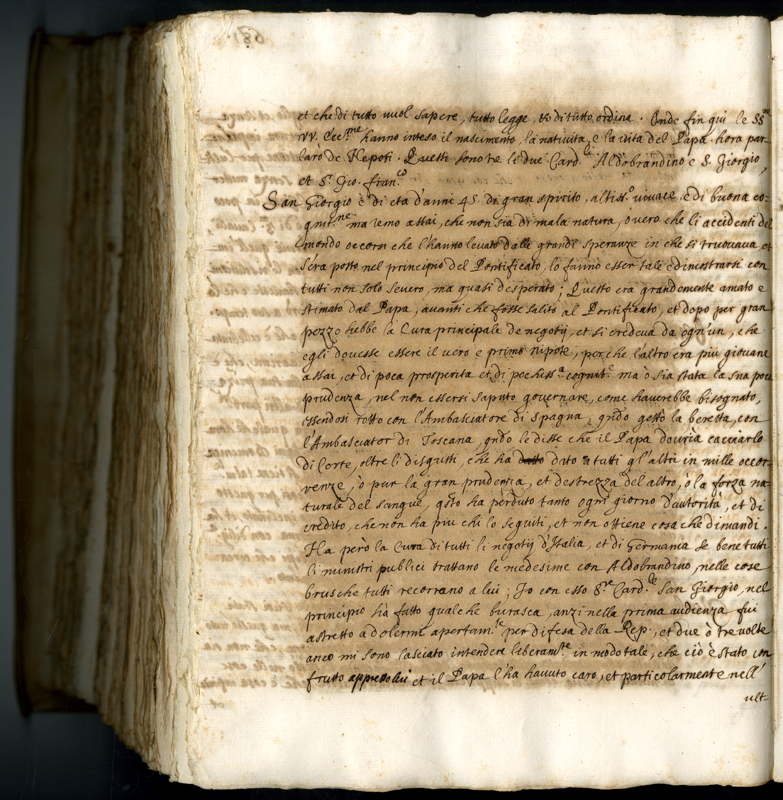 et che di tutto vuol sapere, tutto legge, et di tutto ordina. Onde fin qui le SS.re
VV. Ecc.me hanno inteso il nascimento, la natività, e la vita del Papa. hora par-
larò de Nepoti. Questi sono tre li due Card.li Aldobrandino e S. Giorgio,
et S.r Gio. Fran.co
San Giorgio è di età d'anni 45. di gran spirito, altiss.o vivace, e di buona co-
gnit.ne ma temo assai, che non sia di mala natura, overo che li accidenti del
mondo occorsi che l'hanno levato dalle grandi speranze in che si truovava et
s'era posto nel principio del Pontificato, lo fanno esser tale e dimostrarsi con
tutti non solo severo, ma quasi desperato; Questo era grandemente amato e
stimato dal Papa, avanti che fosse salito al Pontificato, et dopo per gran
pezzo hebbe la Cura principale de negotij, et si credeva da ogn'un, che
egli dovesse essere il vero e primo nipote, perche l'altro era più giovane
assai, et di poca prosperita et di pochiss.a cognit.e ma ò sia stata la sua poca
prudenza, nel non essersi saputo governare, come haverebbe bisognato,
essendosi rotto con l'Ambasciatore di Spagna, qndo gettò la beretta, con
l'Ambasciator di Toscana, qndo le disse che il Papa dovria cacciarlo
di Corte, oltre li disgusti, che ha dato à tutti gl'altri in mille occor-
renze, ò pur la gran prudenza, et destrezza del altro, ò la forza na-
turale del sangue, qsto ha perduto tanto ogni giorno d'autorità, et di
credito, che non ha piu chi lo seguiti, et non ottiene cosa che dimandi.
Ha però la Cura di tutti li negotij d'Italia, et di Germania se bene tutti
li ministri publici trattano le medesime con Aldobrandino, nelle cose
brusche tutti recorrano a lui; Io con esso S.re Card.le San Giorgio, nel
principio hà fatto qualche burasca, anzi nella prima audienza fui
astretto a dolermi apertam.te per difesa della Rep. et due ò tre volte
anco mi sono lasciato intendere liberam.te in modo tale, che ciò è stato con
frutto appresso lui et il Papa l'ha havuto caro, et particolarmente nell'
ult-